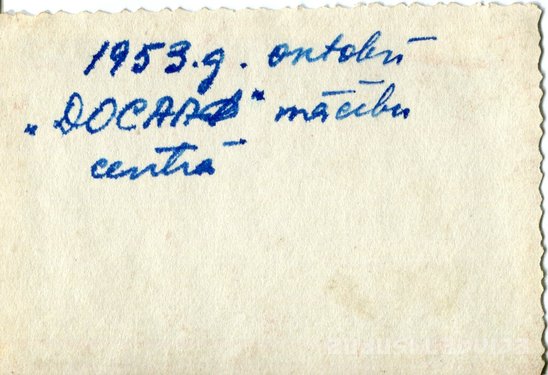 1953.g. oktobrī
„DOCAAF" mācību
centrā